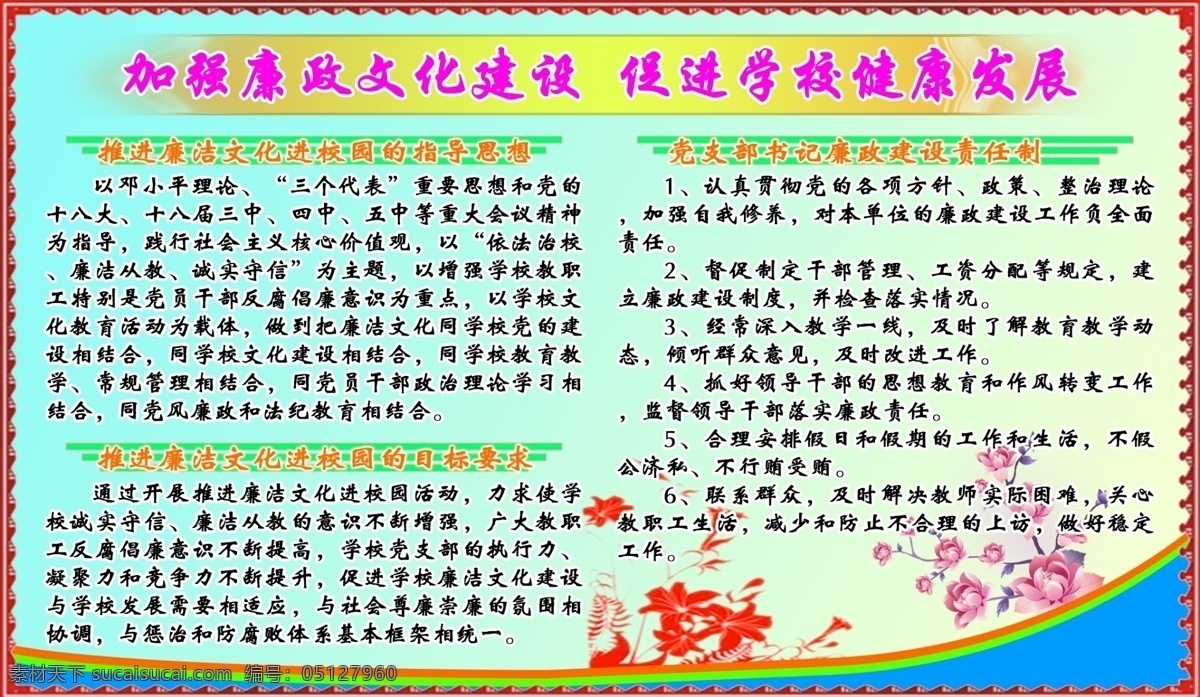 加强廉政文化建设 促进学校健康发展
推进廉洁文化进校园的指导思想
以邓小平理论、“三个代表”重要思想和党的
十八大、十八届三中、四中、五中等重大会议精神
为指导，践行社会主义核心价值观，以“依法治校
、廉洁从教、诚实守信”为主题，以增强学校教职
工特别是党员干部反腐倡廉意识为重点，以学校文
化教育活动为载体，做到把廉洁文化同学校党的建
设相结合，同学校文化建设相结合，同学校教育教
学、常规管理相结合，同党员干部政治理论学习相
结合，同党风廉政和法纪教育相结合。
推进廉洁文化进校园的目标要求
通过开展推进廉洁文化进校园活动，力求使学
校诚实守信、廉洁从教的意识不断增强，广大教职
工反腐倡廉意识不断提高，学校党支部的执行力、
凝聚力和竞争力不断提升，促进学校廉洁文化建设
与学校发展需要相适应，与社会尊廉崇廉的氛围相
协调，与惩治和防腐败体系基本框架相统一。
党支部书记廉政建设责任制
1、认真贯彻党的各项方针、政策、整治理论
，加强自我修养，对本单位的廉政建设工作负全面
责任。
2、督促制定干部管理、工资分配等规定，建
立廉政建设制度，并检查落实情况。
3、经常深入教学一线，及时了解教育教学动
态，倾听群众意见，及时改进工作。
4、抓好领导干部的思想教育和作风转变工作
，监督领导干部落实廉政责任。
5、合理安排假日和假期的工作和生活，不假
公济私、不行贿受贿。
6、联系群众，及时解决教师实际困难，关心
教职工生活，减少和防止不合理的上访，做好稳定
工作。
素材天下 sucaisucai.com 编号：05127960